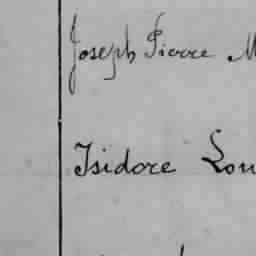 Joseph Pierre M
Isidore Lou